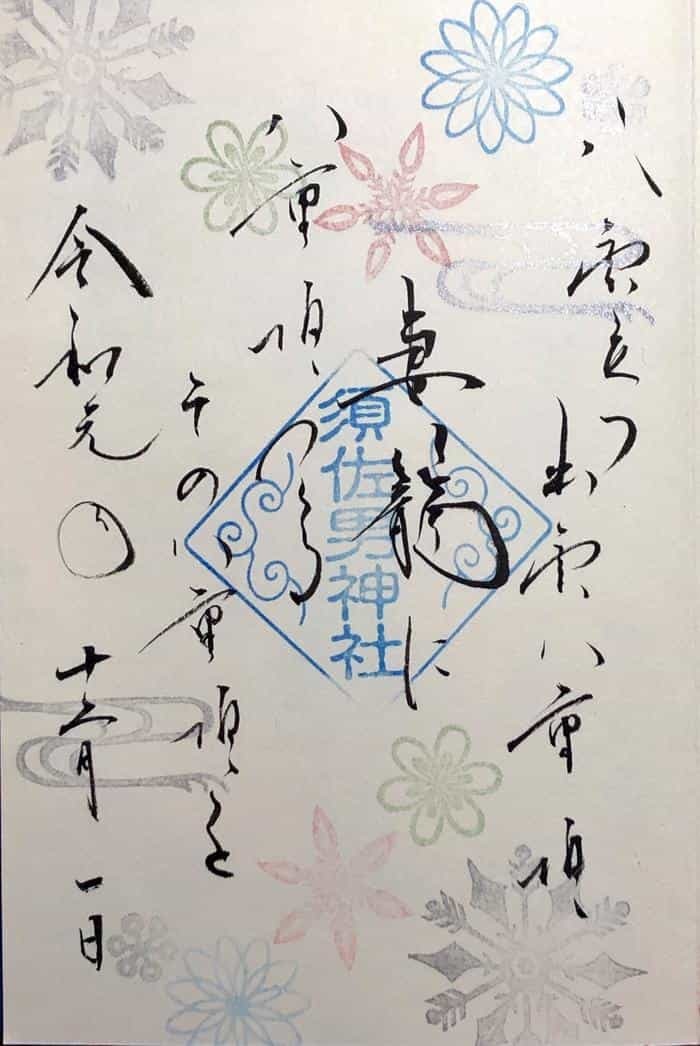 八雲立つ出雲八重垣
妻籠に
八重垣つくる
その八重垣を
令和元年十二月一日
須佐男神社